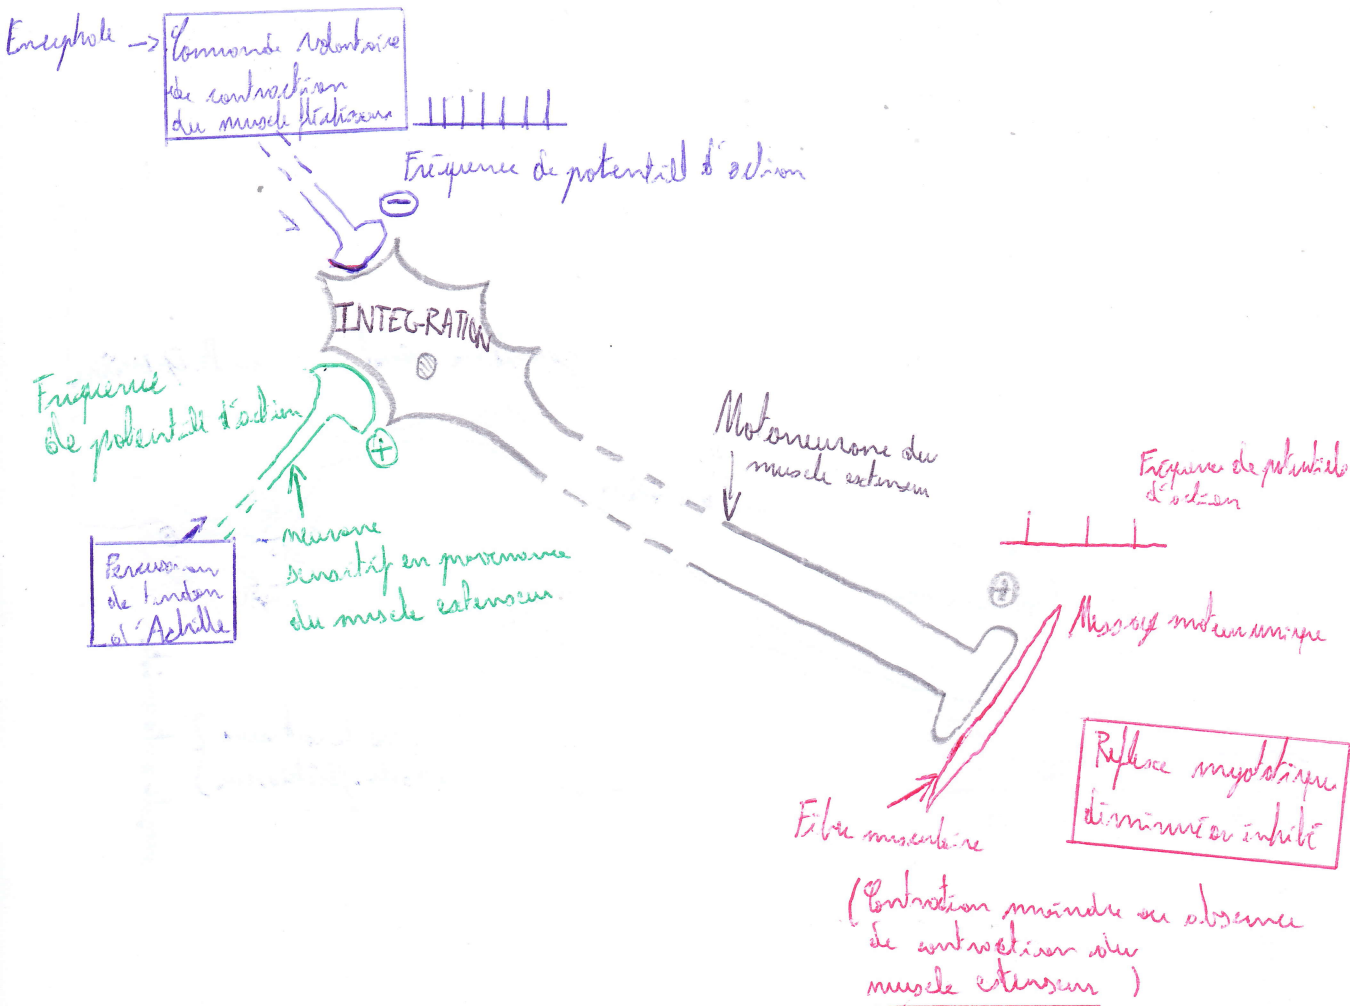 Encéphale → Commande volontaire
de contraction
du muscle fléchisseur
Fréquence de potentiel d'action
−
INTEGRATION
Fréquence
de potentiels d'action
+
neurone
sensitif en provenance
du muscle extenseur
Percussion
de tendon
d'Achille
Motoneurone du
muscle extenseur
Fréquence de potentiels
d'action
+
Message moteur unique
Fibre musculaire
(Contraction moindre ou absence
de contraction du
muscle extenseur)
Réflexe myotatique
diminué ou inhibé